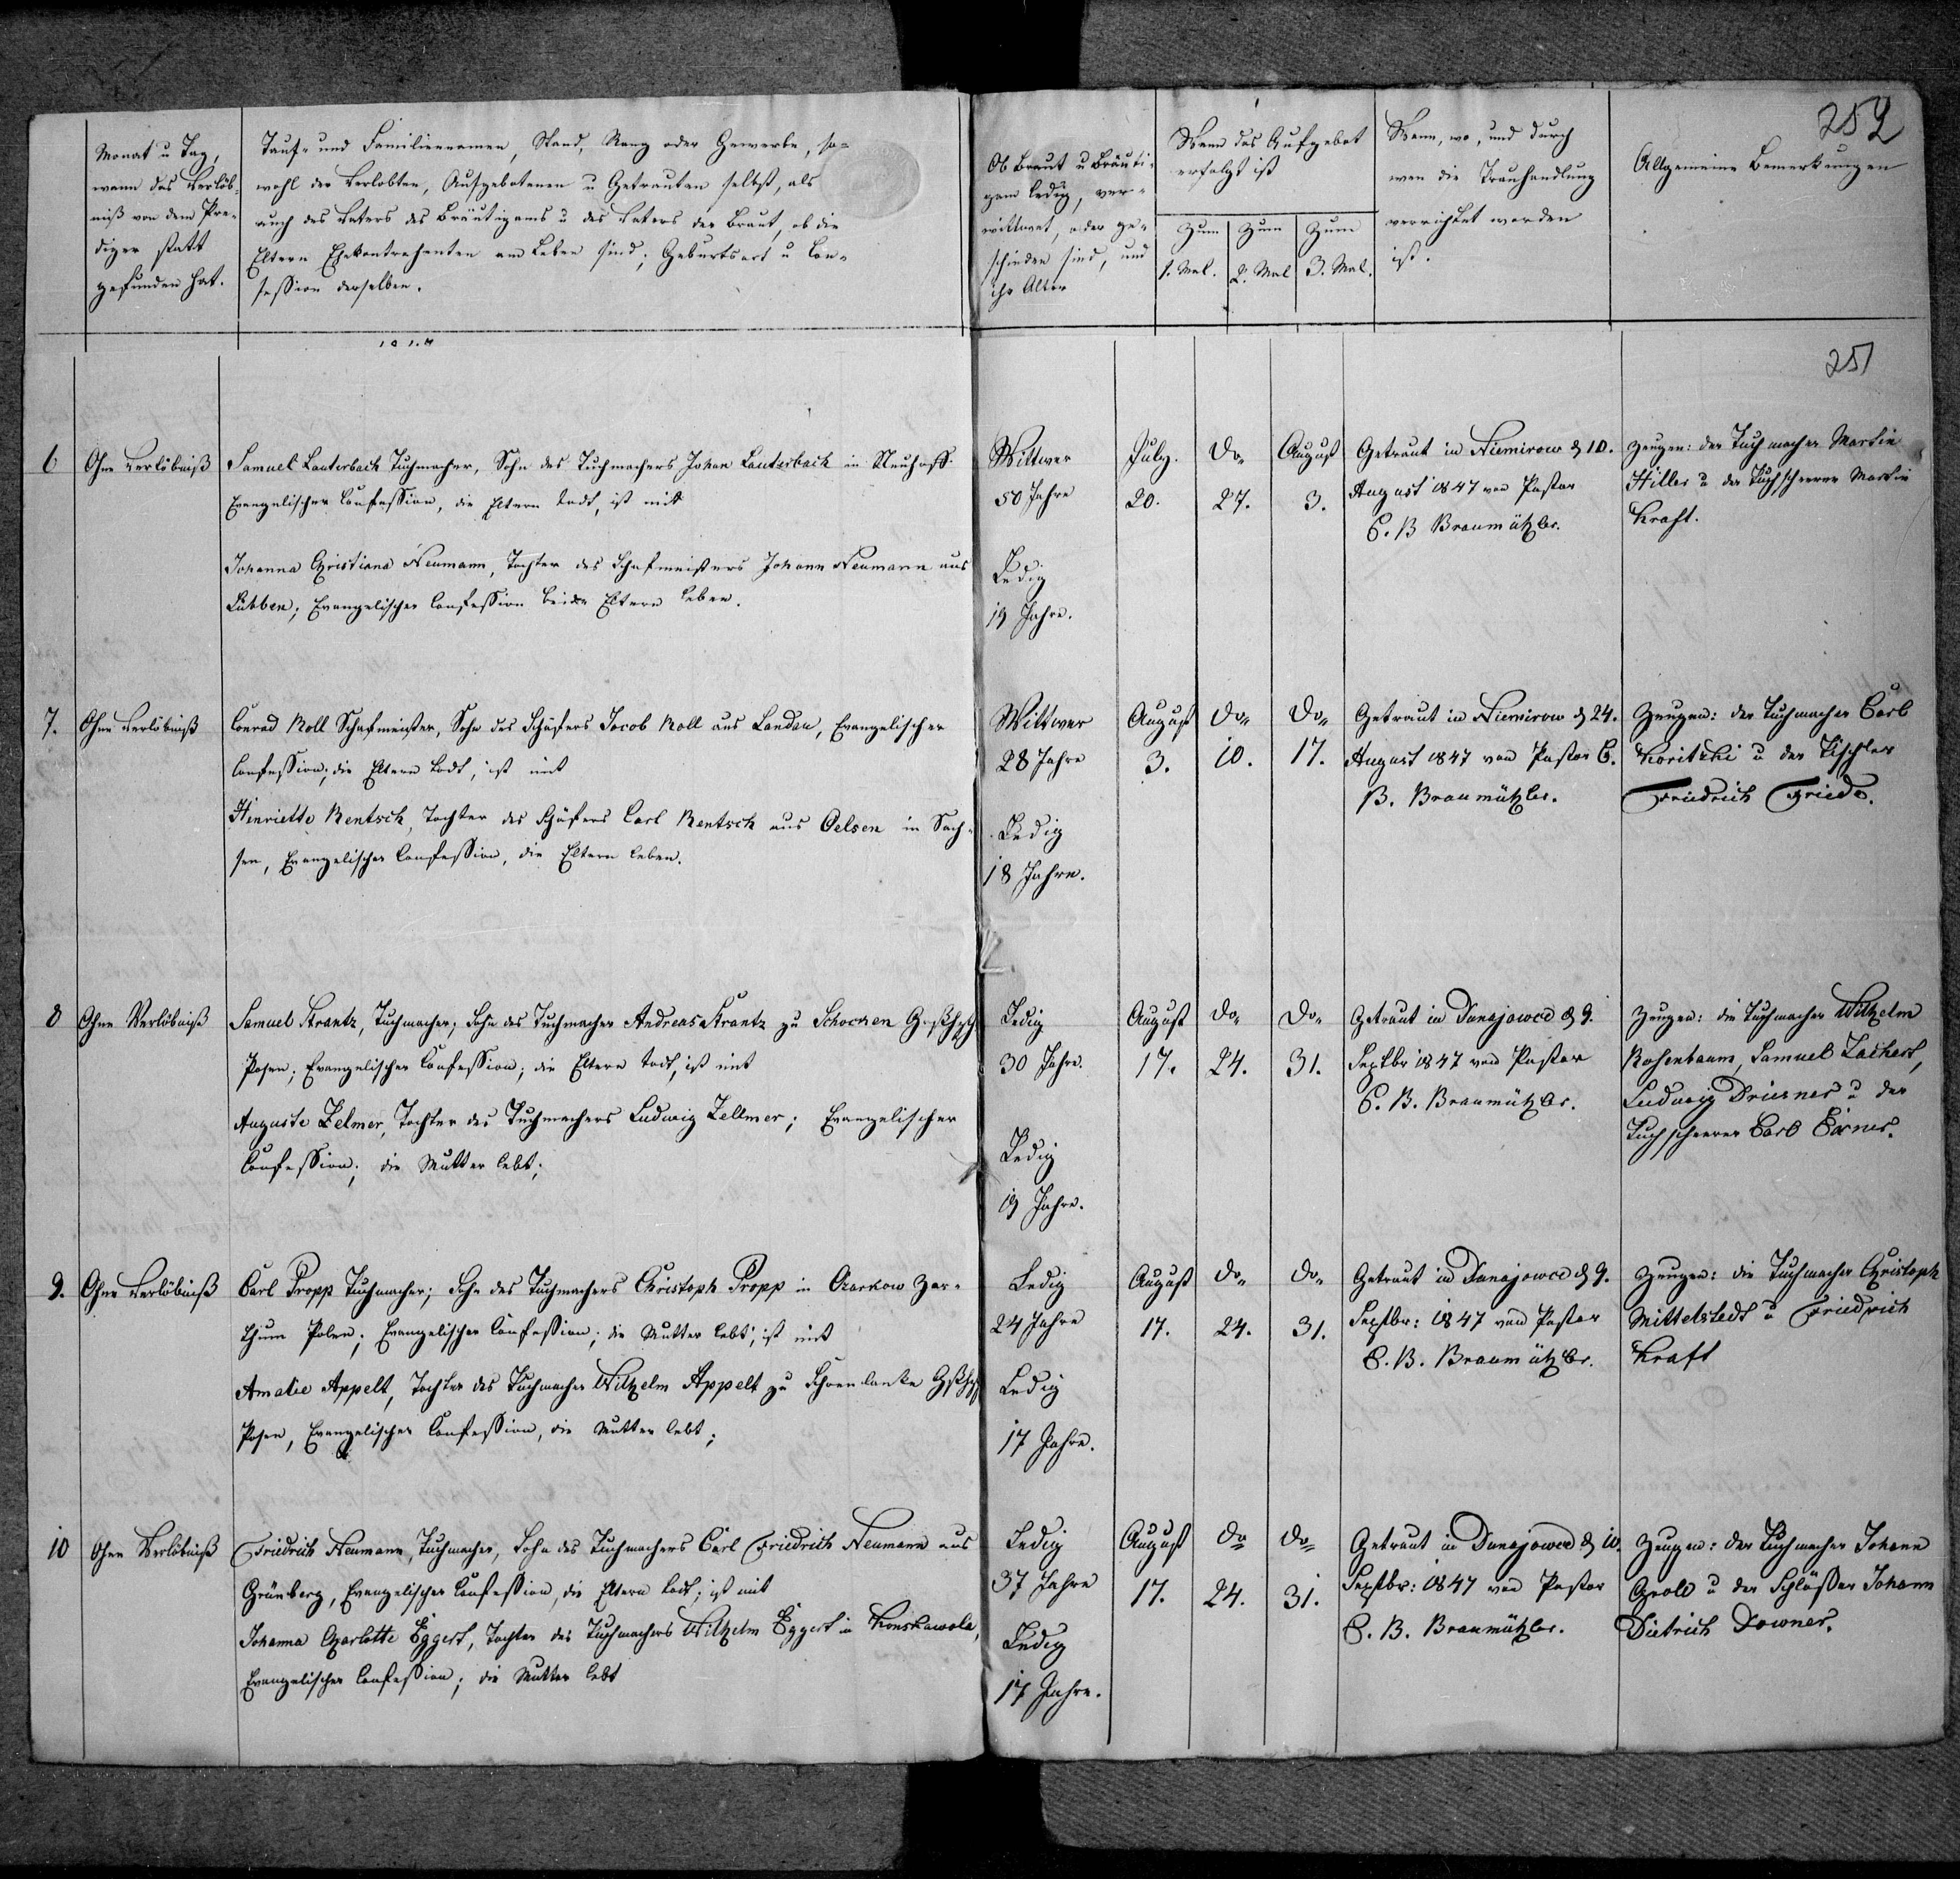 252
Monat u Tag,
wann das Verlöb-
niß von dem Pre-
diger statt
gefunden hat.
Tauf- und Familiennamen, Stand, Rang oder Gewerbe, so-
wohl der Verlobten, Aufgebotenen u Getrauten selbst, als
auch des Vaters des Bräutigams u des Vaters der Braut, ob die
Eltern Ehekontrahenten am Leben sind; Geburtsort u Con-
fession derselben.
Ob Braut u Bräuti-
gam ledig, ver-
wittwet, oder ge-
schieden sind, und
ihr Alter
Wann das Aufgebot
erfolgt ist
Zum 1. Mal.
Zum 2. Mal
Zum 3. Mal.
Wann, wo, und durch
wen die Trauhandlung
verrichtet worden
ist.
Allgemeine Bemerkungen
251
6 Ohne Verlöbniß
Samuel Lauterbach Tuchmacher, Sohn des Tuchmachers Johan Lauterbach in
Evangelischer Confession, die Eltern todt, ist mit
Johanna Christiana Neumann, Tochter des Schafmeisters Johann Neumann aus
Lübben; Evangelischer Confession beide Eltern leben.
Wittwer
50 Jahre
Ledig
19 Jahre.
July. 20.
do. 27.
August 3.
Getraut in Niemirow d 10.
August 1847 von Pastor
C. B Braumützler.
Zeugen: der Tuchmacher Martin
Hiller u der Tuchscherer Martin
Kraft.
7. Ohne Verlöbniß
Conrad Noll Schafmeister, Sohn des Schäfers Jacob Noll aus Landau, Evangelischer
Confession; die Eltern todt, ist mit
Henriette Rentsch, Tochter des Schäfers Carl Rentsch aus Oelsen in Sach-
sen, Evangelischer Confession, die Eltern leben.
Wittwer
28 Jahre
Ledig
18 Jahre.
August 3.
do. 10.
do. 17.
Getraut in Niemirow d 24.
August 1847 von Pastor C.
B. Braumützler.
Zeugen: der Tuchmacher Carl
Koritzki u der Tischler
Friedrich Friede.
8 Ohne Verlöbniß
Samuel Krantz, Tuchmacher; Sohn des Tuchmacher Andreas Krantz zu Schocken
Posen; Evangelischer Confession; die Eltern todt, ist mit
Auguste Zelmer, Tochter des Tuchmachers Ludwig Zellmer; Evangelischer
Confession; die Mutter lebt;
Ledig
30 Jahre.
Ledig
19 Jahre.
August 17.
do. 24.
do. 31.
Getraut in Dunajowce d 9.
Septbr 1847 von Pastor
C. B. Braumützler.
Zeugen: die Tuchmacher Wilhelm
Rosenbaum, Samuel Zachert,
Ludwig Driesner u der
Tuchscherer Carl
9. Ohne Verlöbniß
Carl Propp Tuchmacher; Sohn des Tuchmachers Christoph Propp in Ozorkow Zar-
thum Polen; Evangelischer Confession; die Mutter lebt, ist mit
Amalie Appelt, Tochter des Tuchmacher Wilhelm Appelt zu Schoenlanke
Posen, Evangelischer Confession, die Mutter lebt;
Ledig
24 Jahre
Ledig
17 Jahre.
August 17.
do. 24.
do. 31.
Getraut in Dunajowce d 9.
Septbr: 1847 von Pastor
C. B. Braumützler.
Zeugen: die Tuchmacher Christoph
Mittelstedt u Friedrich
Kraft
10 Ohne Verlöbniß
Friedrich Neumann, Tuchmacher, Sohn des Tuchmachers Carl Friedrich Neumann aus
Grünberg, Evangelischer Confession, die Eltern todt; ist mit
Johanna Charlotte Eggert, Tochter des Tuchmachers Wilhelm Eggert in Konskawola,
Evangelischer Confession; die Mutter lebt
Ledig
37 Jahre
Ledig
17 Jahre.
August 17.
do 24.
do 31.
Getraut in Dunajowce d 10.
Septbr: 1847 von Pastor
C. B. Braumützler.
Zeugen: der Tuchmacher Johann
u der Schlosser Johann
Dietrich